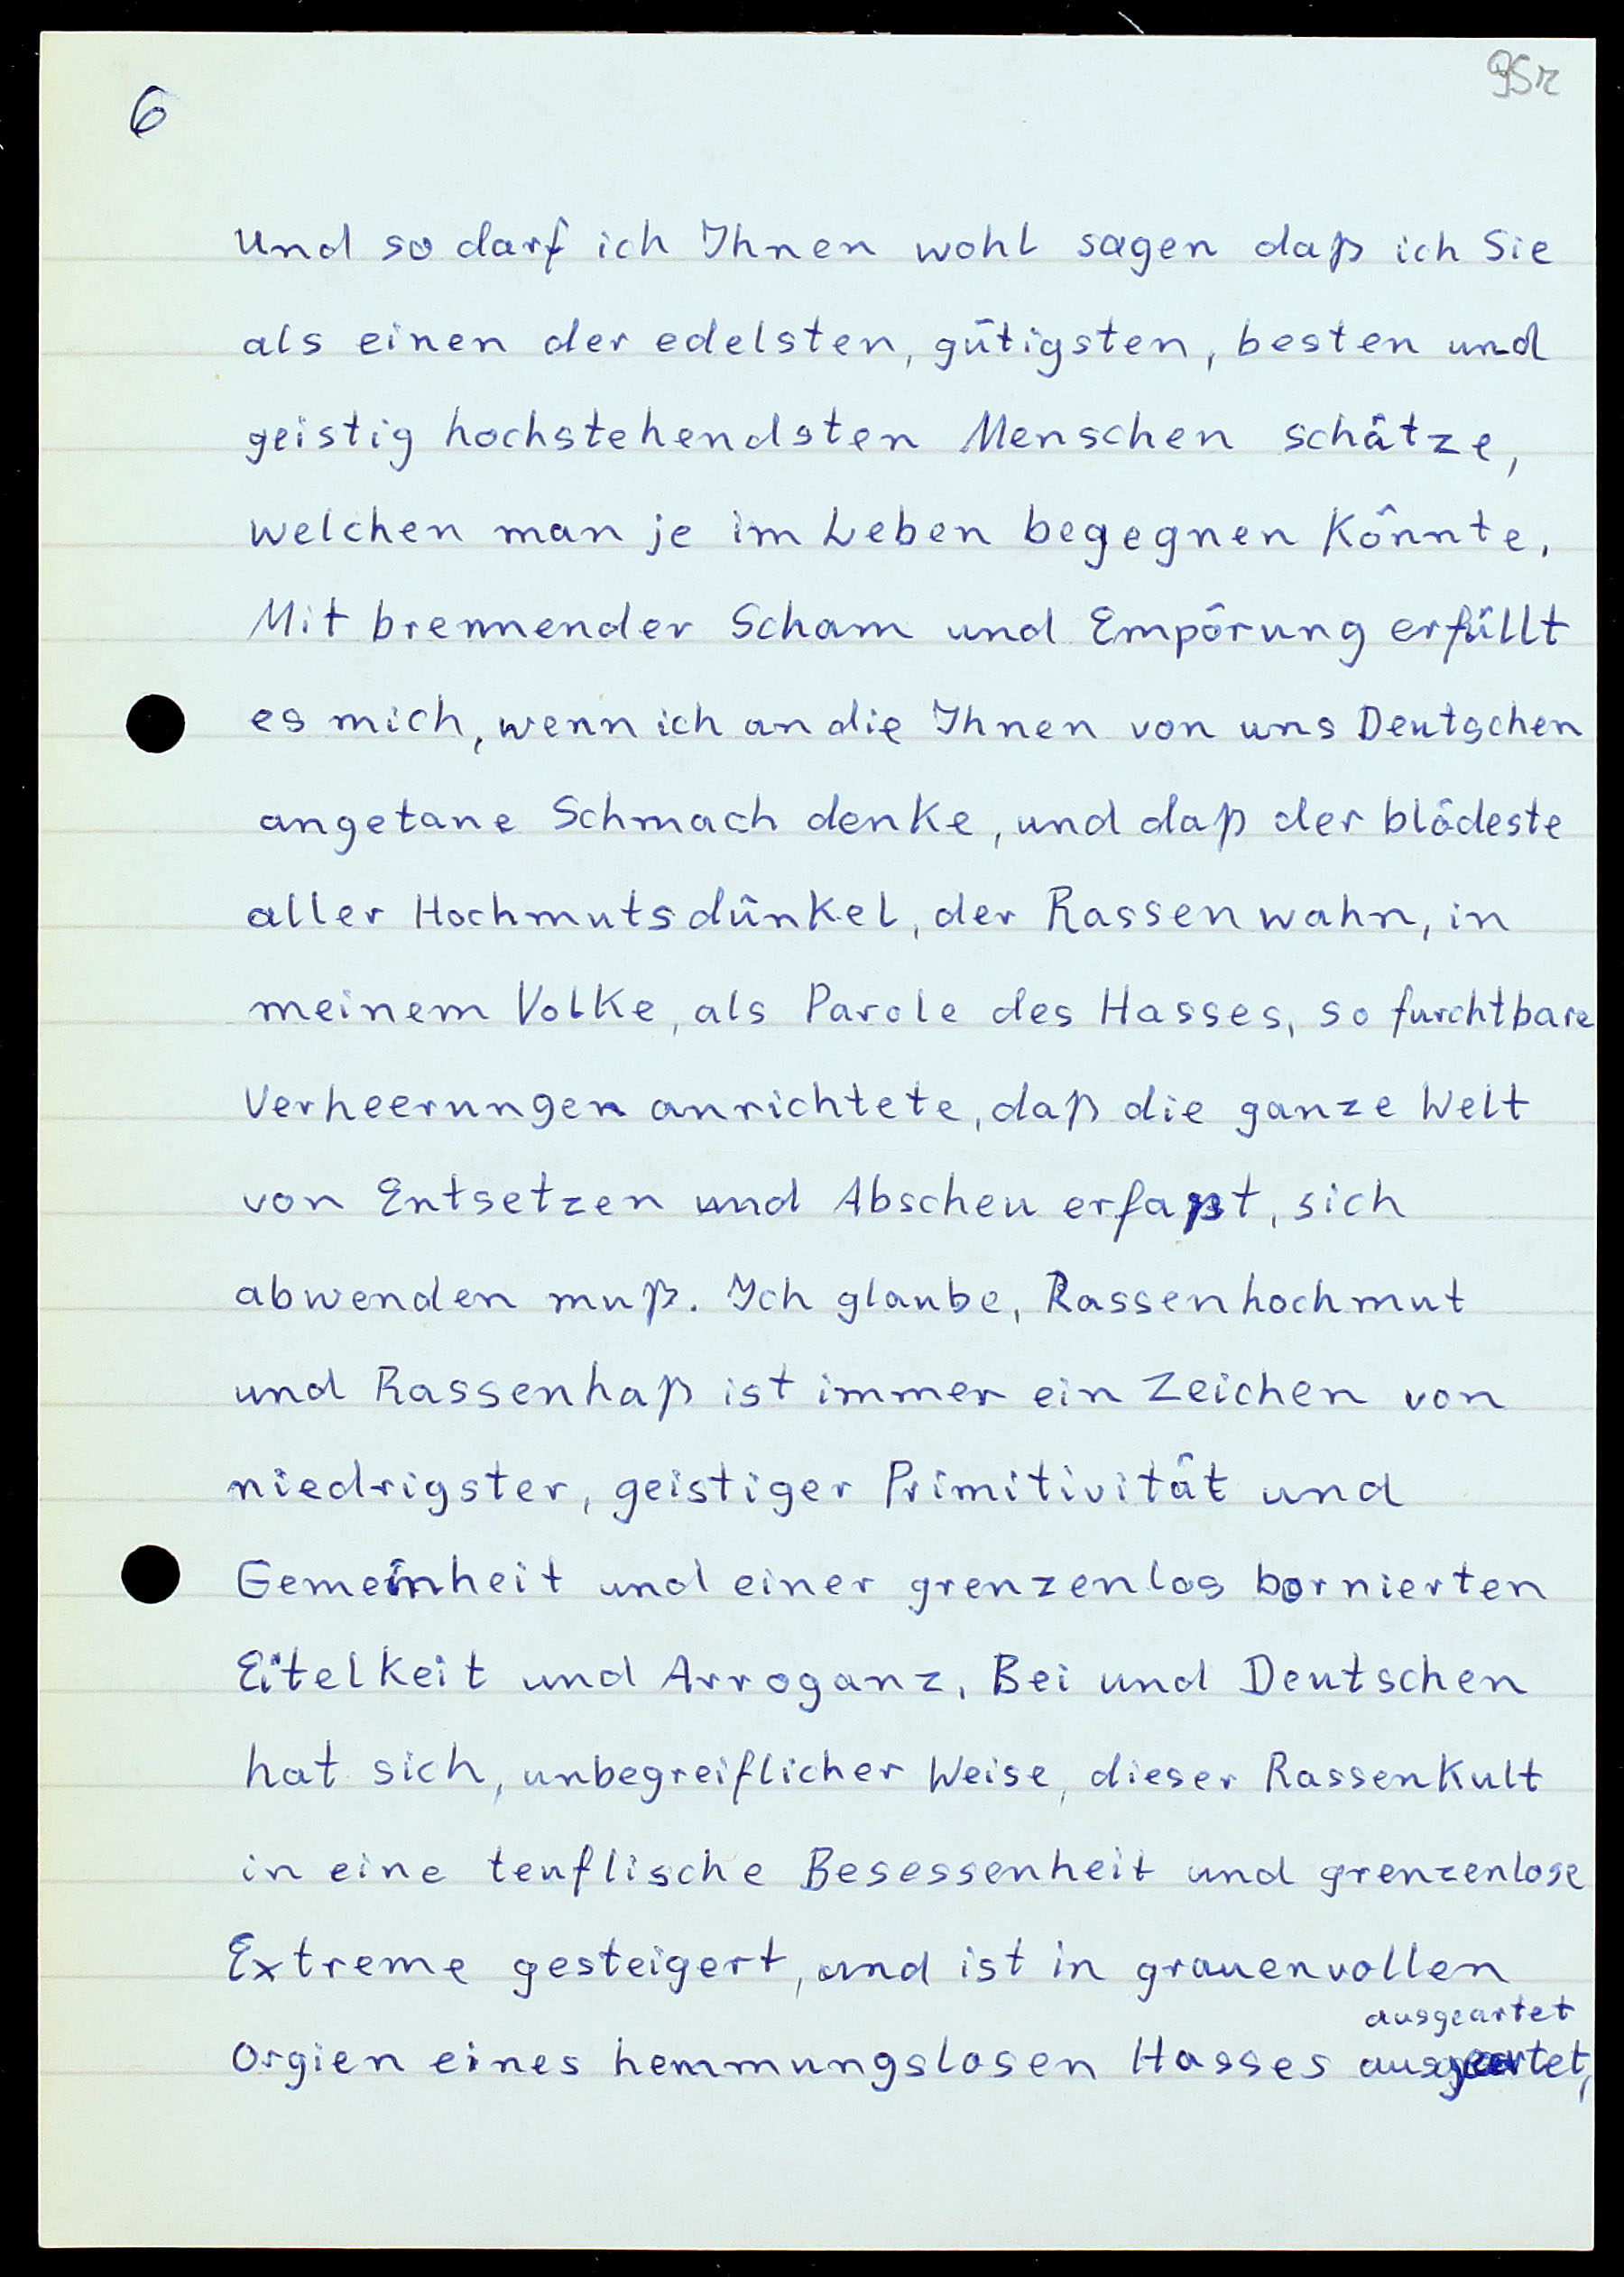 6
95r
Und so darf ich Ihnen wohl sagen daß ich Sie
als einen der edelsten, gütigsten, besten und
geistig hochstehendsten Menschen schätze,
welchen man je im Leben begegnen könnte.
Mit brennender Scham und Empörung erfüllt
es mich, wenn ich an die Ihnen von uns Deutschen
angetane Schmach denke, und daß der blödeste
aller Hochmutsdünkel, der Rassenwahn, in
meinem Volke, als Parole des Hasses, so furchtbare
Verheerungen anrichtete, daß die ganze Welt
von Entsetzen und Abscheu erfaßt, sich
abwenden muß. Ich glaube, Rassenhochmut
und Rassenhaß ist immer ein Zeichen von
niedrigster, geistiger Primitivität und
Gemeinheit und einer grenzenlos bornierten
Eitelkeit und Arroganz. Bei und Deutschen
hat sich, unbegreiflicher Weise, dieser Rassenkult
in eine teuflische Besessenheit und grenzenlose
Extreme gesteigert, und ist in grauenvollen
ausgeartet
Orgien eines hemmungslosen Hasses ausgeartet,